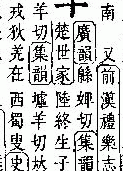 南 又前漢禮樂志
廣韻緜婢切集韻
楚世家陸終生子
羊切集韻墟羊切𠀤
戎狄羌在西蜀叟史